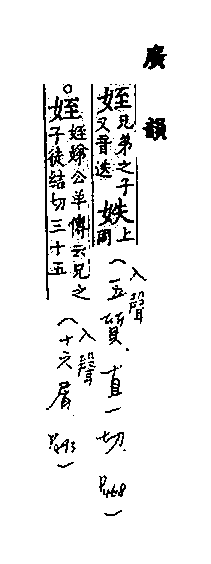 廣韻
姪 兄弟之子又音迭 妷 上同 (入聲 五質. 直一切. P.468)
。姪 姪娣公羊傳云兄之子徒結切三十五 (入聲 十六屑 P.493)